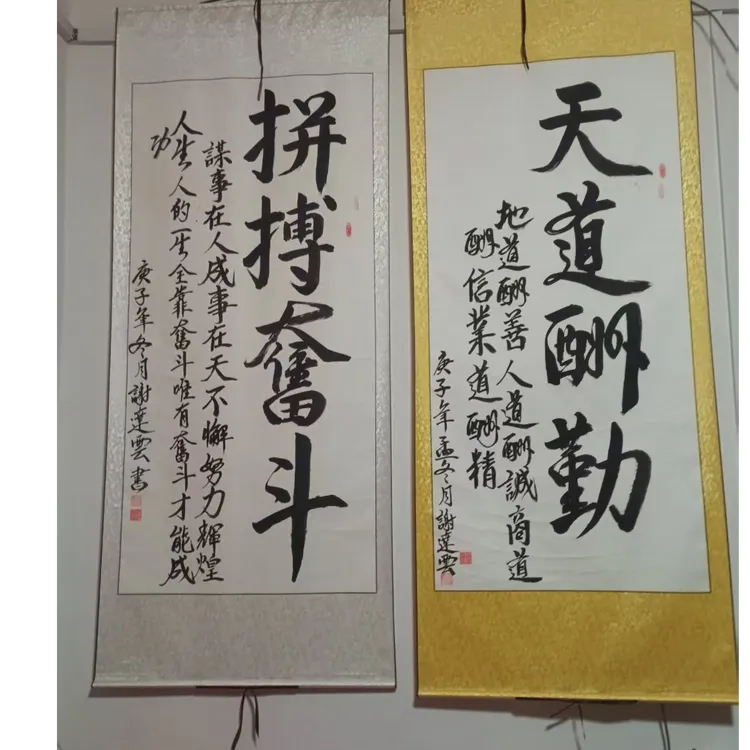 拼搏奮斗
謀事在人成事在天不懈努力輝煌
人生人的一生全靠奮斗唯有奮斗才能成
功
庚子年冬月謝達雲書
天道酬勤
地道酬善人道酬誠商道
酬信業道酬精
庚子年孟冬月謝達雲